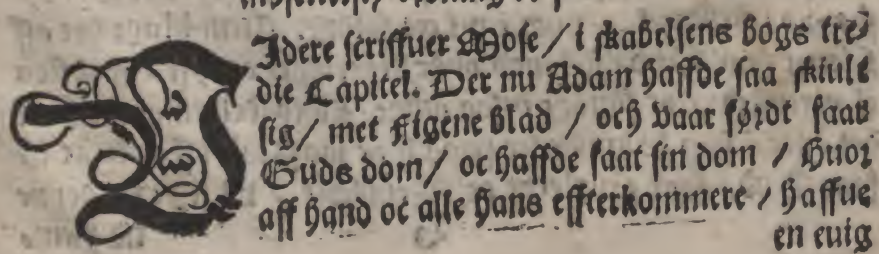 VIdere scriffuer Mose / i skabelsens bogs tre/
die Capitel. Der nu Adam haffde saa skiult
sig / met figene blad / och vaar førdt faar
Guds dom / oc haffde faat sin dom / huor
aff hand oc alle hans effterkommere / haffue
en euig